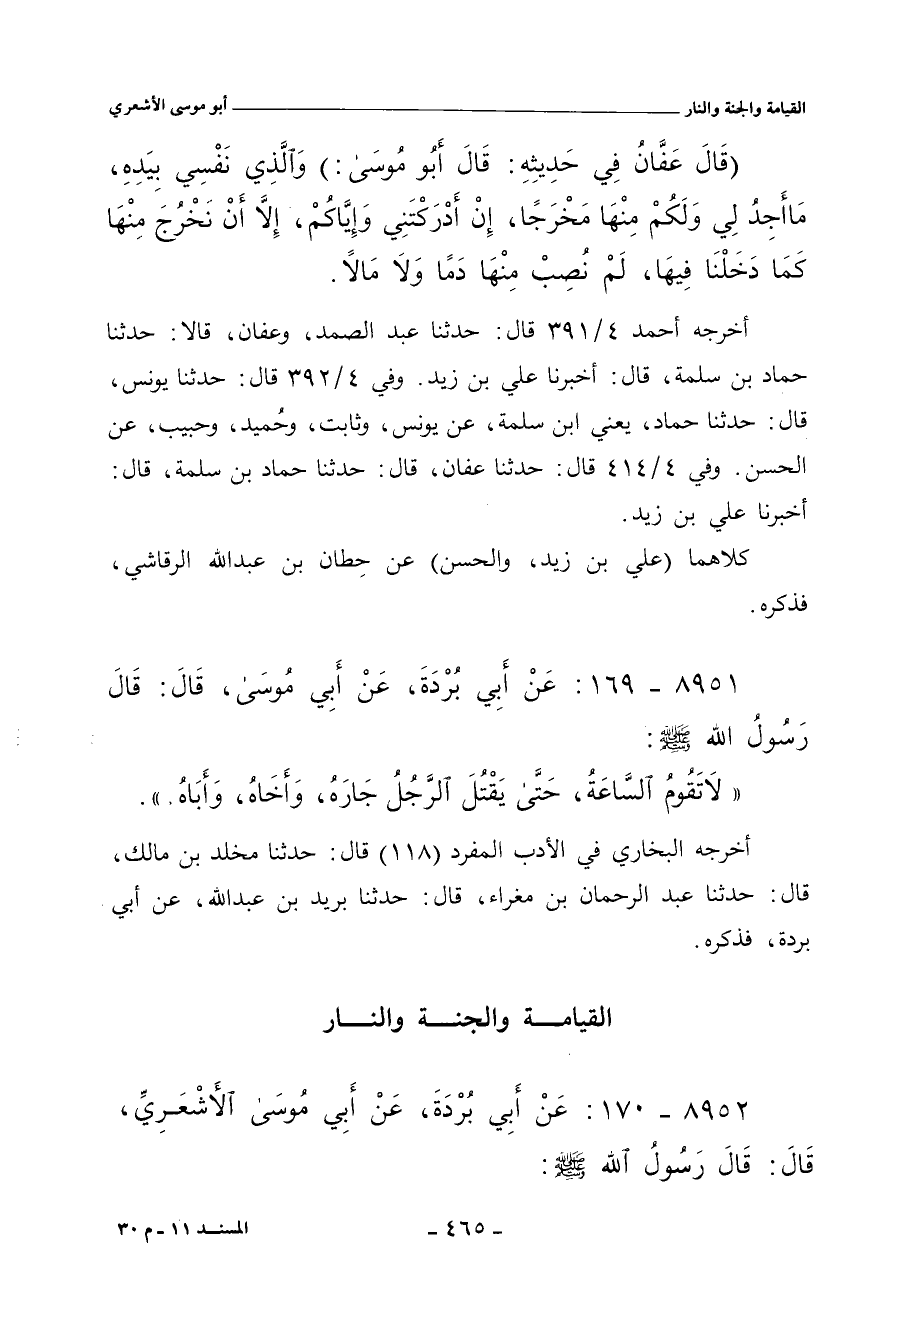 القيامة والجنة والنار ــــــــ أبو موسى الأشعري
(قَالَ عَفَّانُ فِي حَدِيثِهِ: قَالَ أَبُو مُوسَىٰ:) وَٱلَّذِي نَفْسِي بِيَدِهِ،
مَاأَجِدُ لِي وَلَكُمْ مِنْهَا مَخْرَجًا، إِنْ أَدْرَكَتْنِي وَإِيَّاكُمْ، إِلَّا أَنْ نَخْرُجَ مِنْهَا
كَمَا دَخَلْنَا فِيهَا، لَمْ نُصِبْ مِنْهَا دَمًا وَلَا مَالًا.
أخرجه أحمد ٣٩١/٤ قال: حدثنا عبد الصمد، وعفان، قالا: حدثنا
حماد بن سلمة، قال: أخبرنا علي بن زيد. وفي ٣٩٢/٤ قال: حدثنا يونس،
قال: حدثنا حماد، يعني ابن سلمة، عن يونس، وثابت، وحُميد، وحبيب، عن
الحسن. وفي ٤١٤/٤ قال: حدثنا عفان، قال: حدثنا حماد بن سلمة، قال:
أخبرنا علي بن زيد.
كلاهما (علي بن زيد، والحسن) عن حِطان بن عبدالله الرقاشي،
فذكره.
٨٩٥١ - ١٦٩: عَنْ أَبِي بُرْدَةَ، عَنْ أَبِي مُوسَىٰ، قَالَ: قَالَ
رَسُولُ الله ﷺ:
« لَاتَقُومُ ٱلسَّاعَةُ، حَتَّىٰ يَقْتُلَ ٱلرَّجُلُ جَارَهُ، وَأَخَاهُ، وَأَبَاهُ. ».
أخرجه البخاري في الأدب المفرد (١١٨) قال: حدثنا مخلد بن مالك،
قال: حدثنا عبد الرحمان بن مغراء، قال: حدثنا بريد بن عبدالله، عن أبي
بردة، فذكره.
القيامــة والجنــة والنــار
٨٩٥٢ - ١٧٠: عَنْ أَبِي بُرْدَةَ، عَنْ أَبِي مُوسَىٰ ٱلْأَشْعَـرِيِّ،
قَالَ: قَالَ رَسُولُ ٱلله ﷺ:
- ٤٦٥ - المسنـد ١١ - م ٣٠